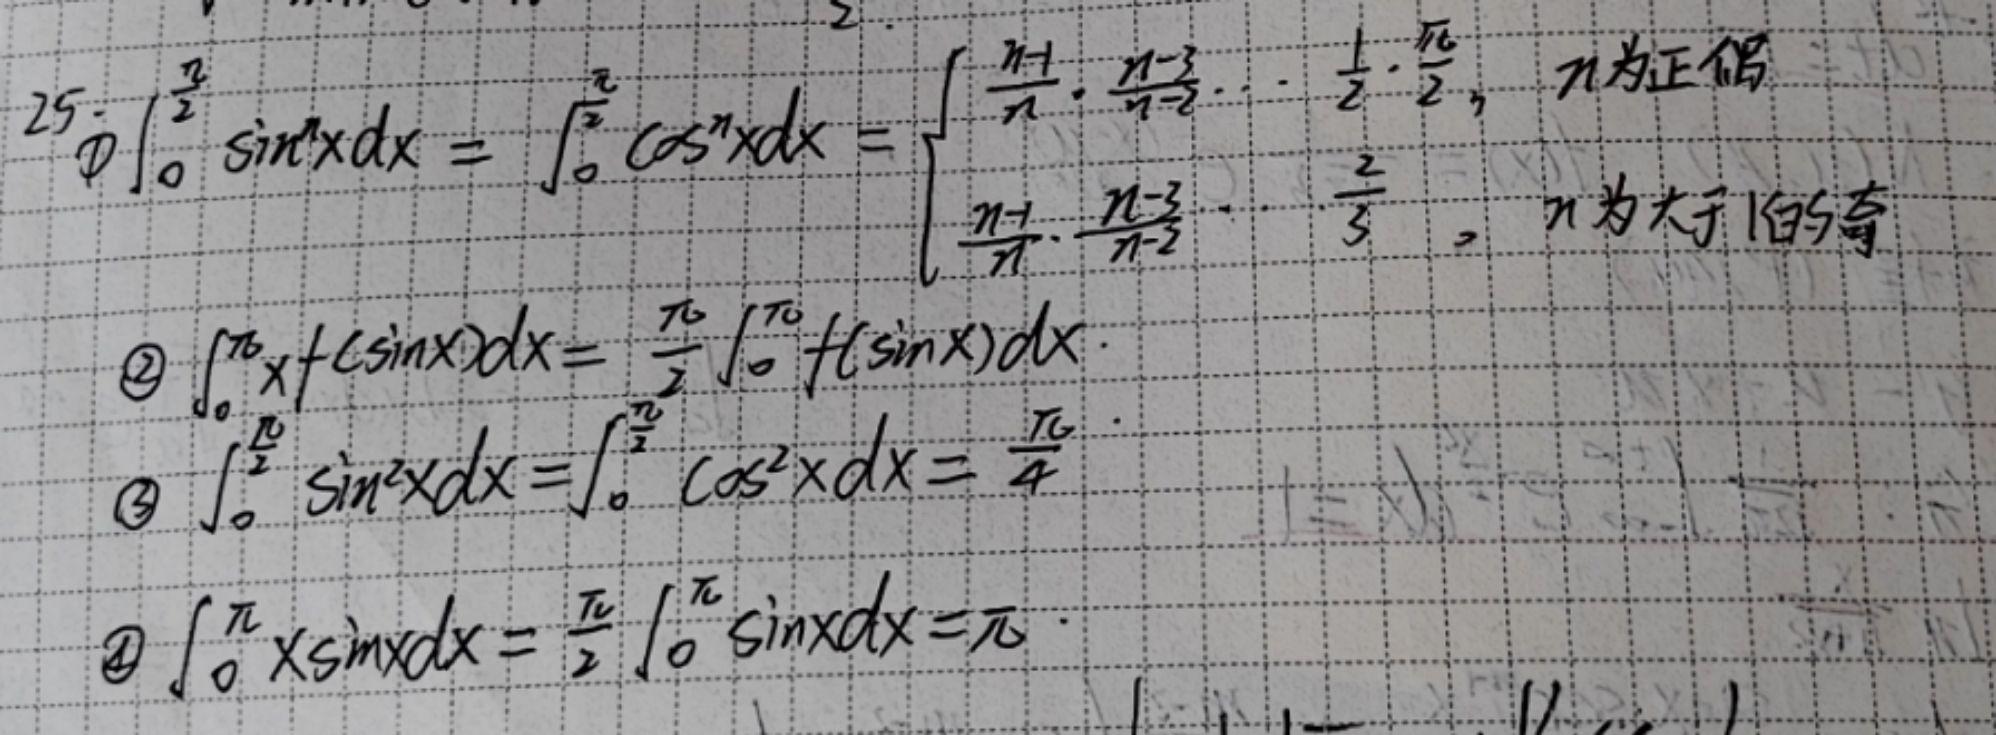 25. ① ∫₀^{π/2} sinⁿx dx = ∫₀^{π/2} cosⁿx dx = { (n-1)/n · (n-3)/(n-2) ··· 1/2 · π/2, n为正偶
(n-1)/n · (n-3)/(n-2) ··· 2/3, n为大于1的奇
② ∫₀^π x f(sinx)dx = π/2 ∫₀^π f(sinx)dx.
③ ∫₀^{π/2} sin²x dx = ∫₀^{π/2} cos²x dx = π/4.
④ ∫₀^π x sinx dx = π/2 ∫₀^π sinx dx = π.